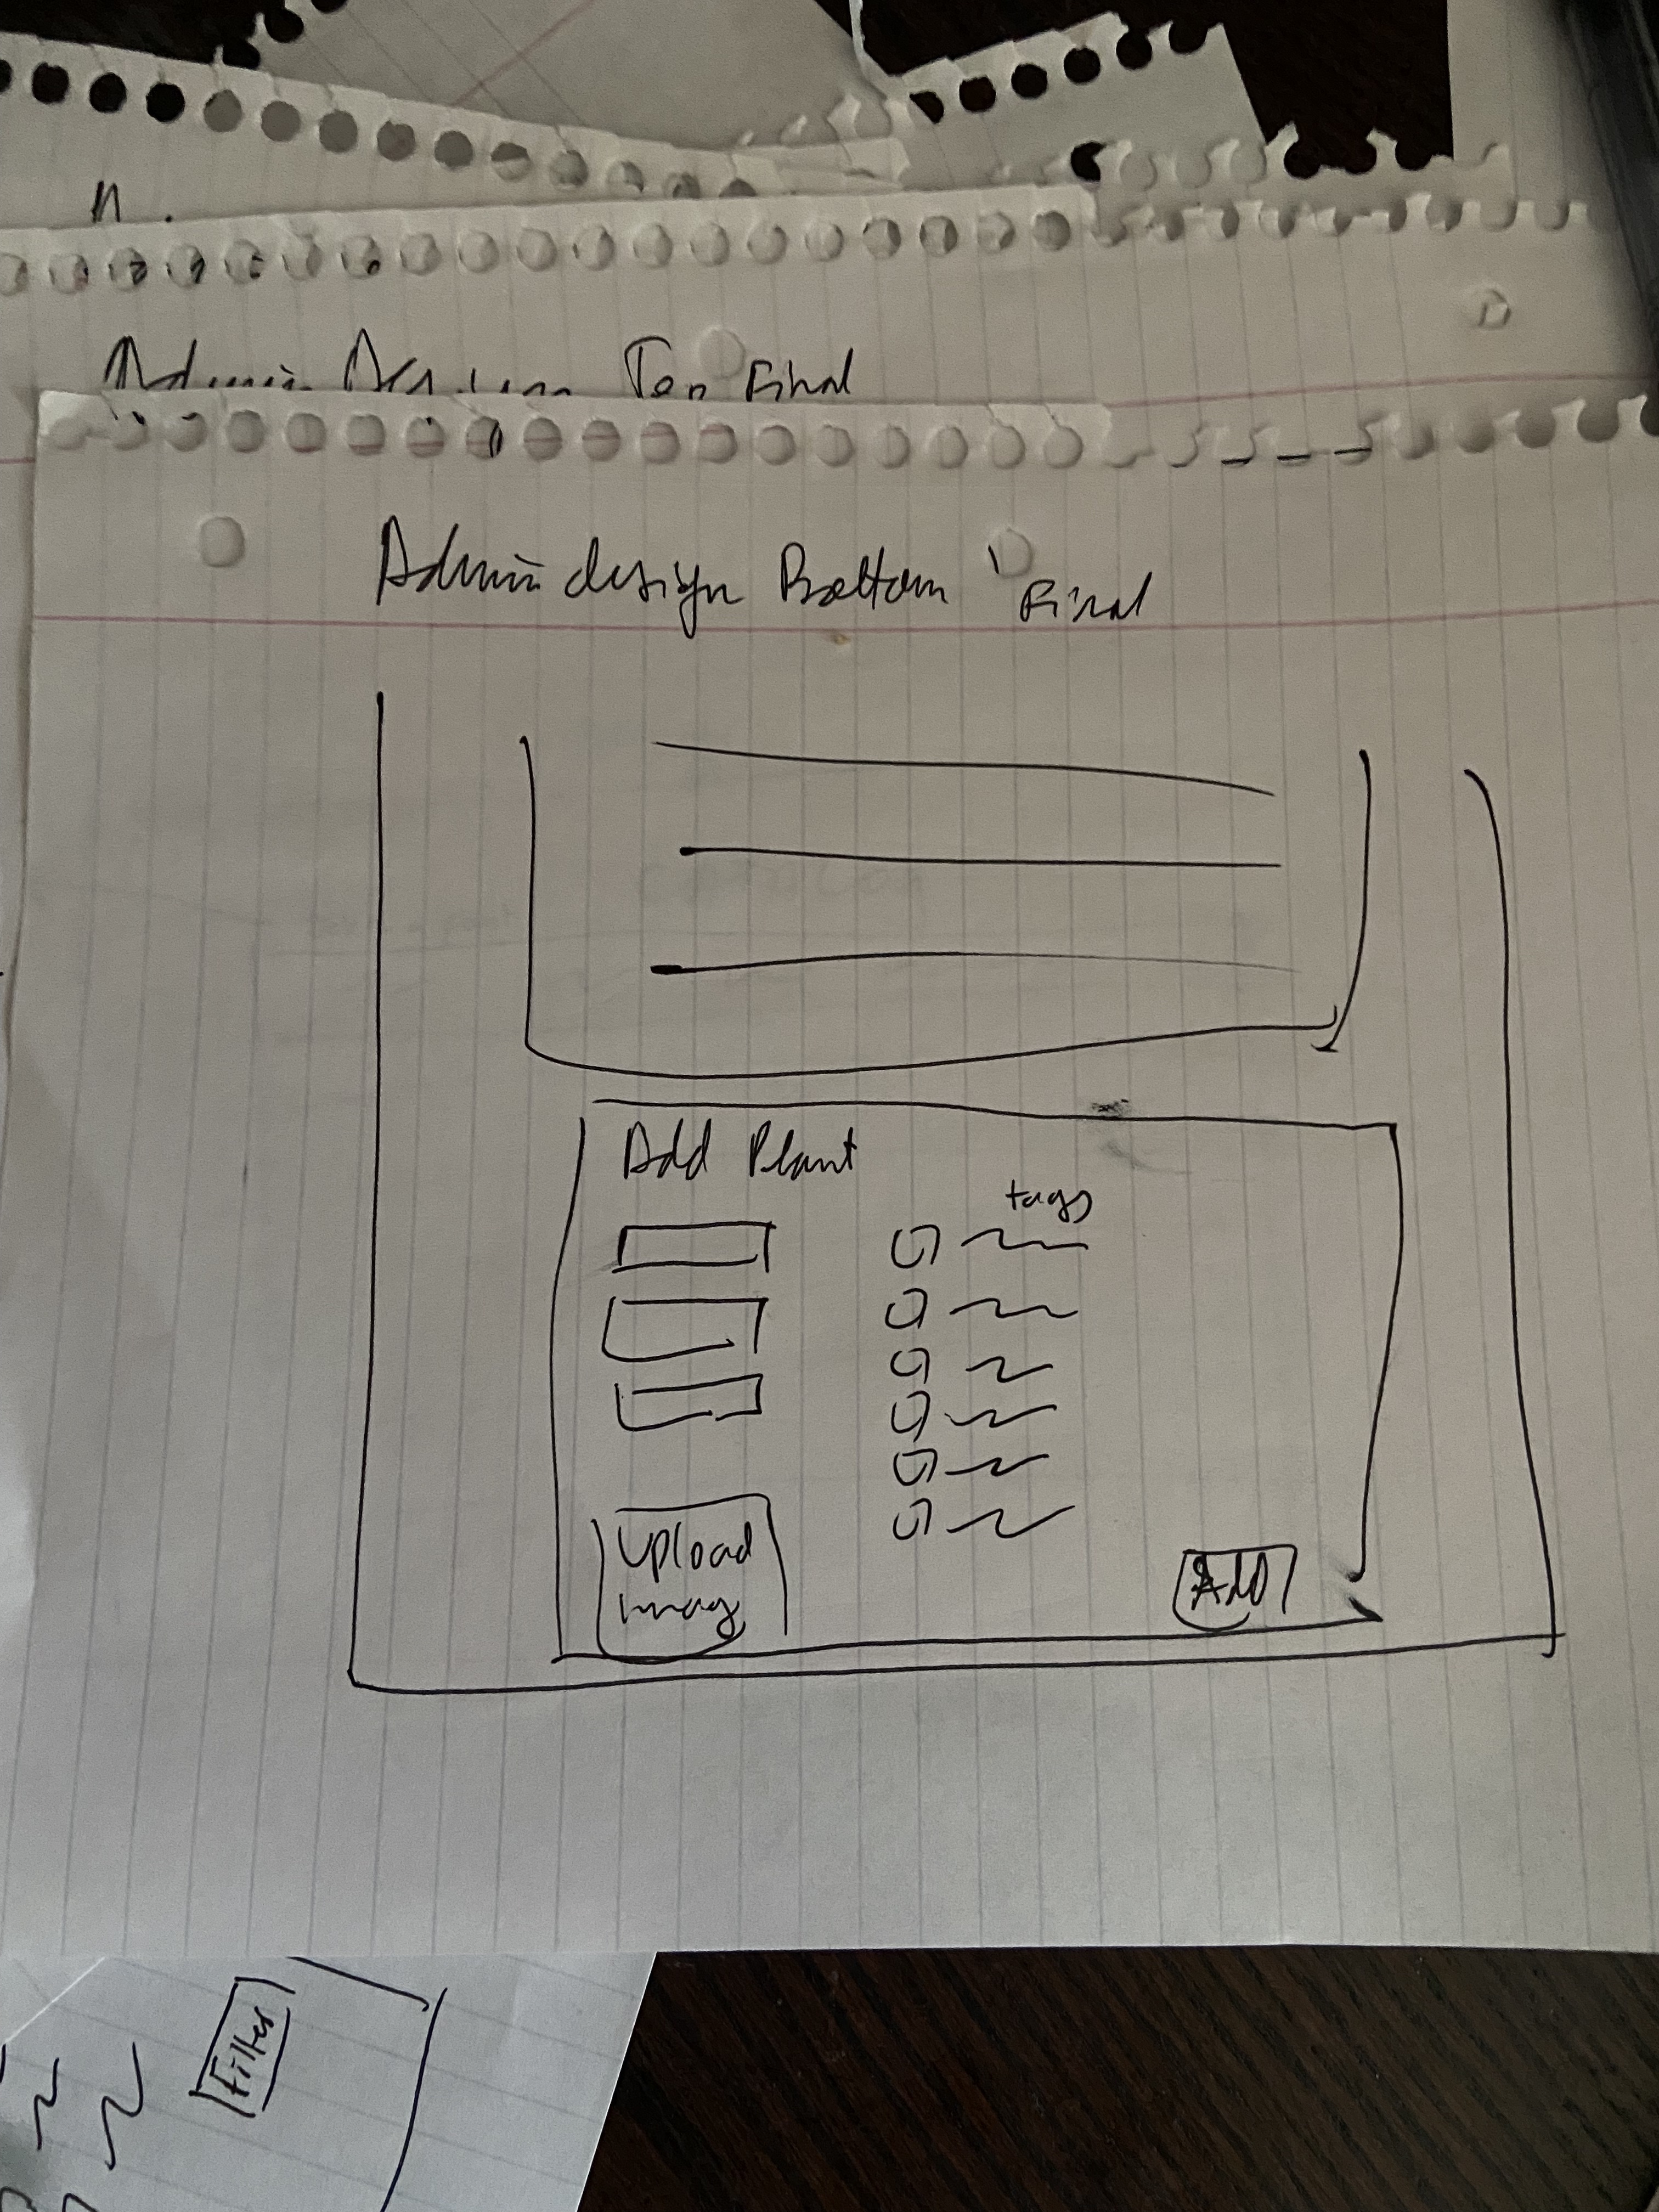 Admin Design Top Final
Admin design Bottom Final
Add Plant
tags
Upload
Imag
Add
Filter